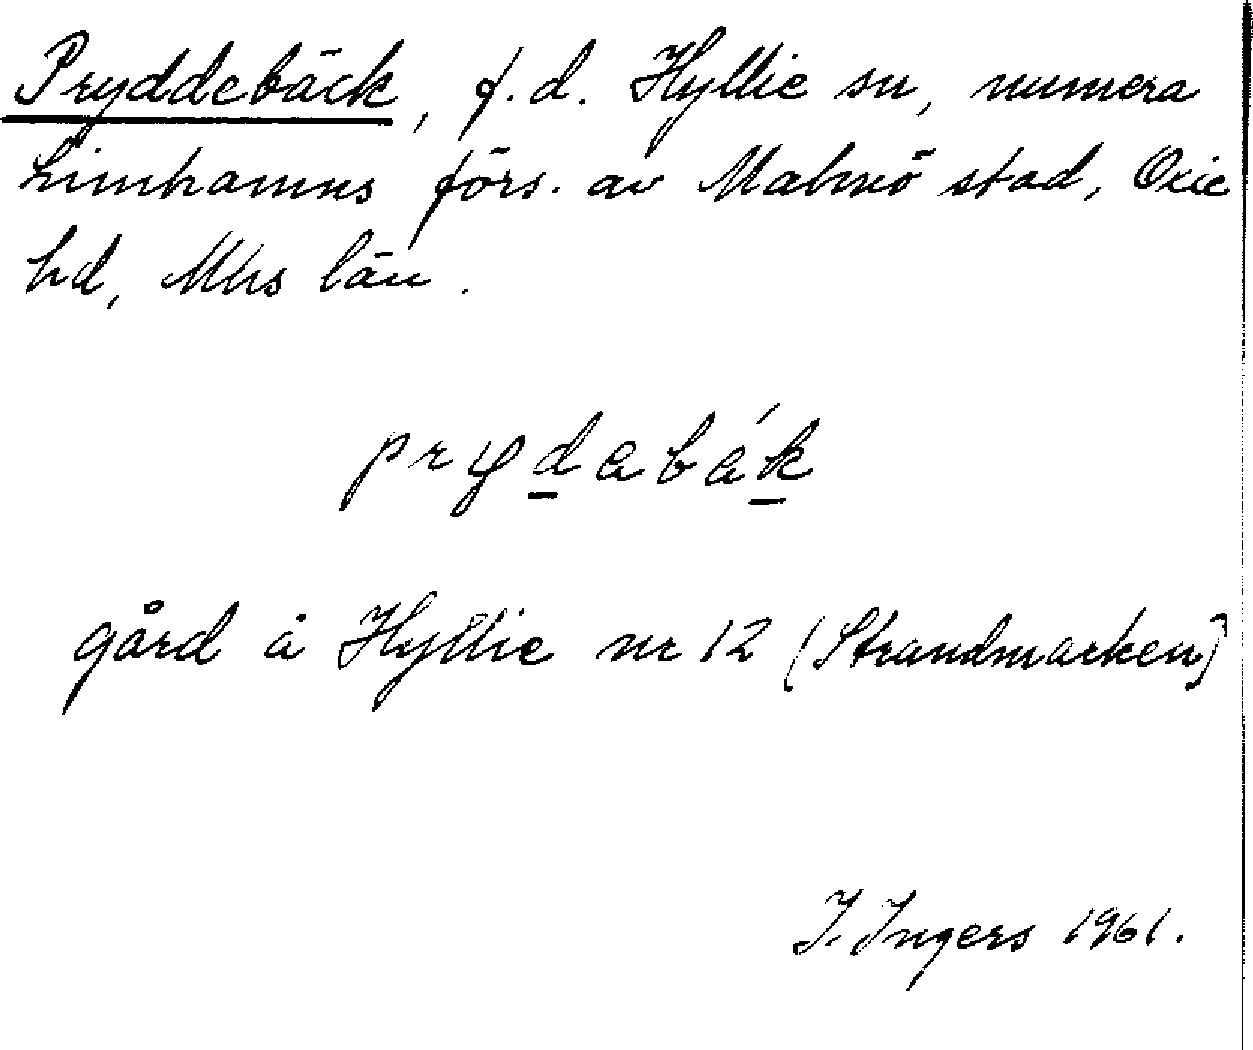 Pryddebäck, f.d. Hyllie sn, numera
Limhamns förs. av Malmö stad, Oxie
hd, Mhs län.
prydabák
gård å Hyllie nr 12 (Strandmarken)
I. Ingers 1961.